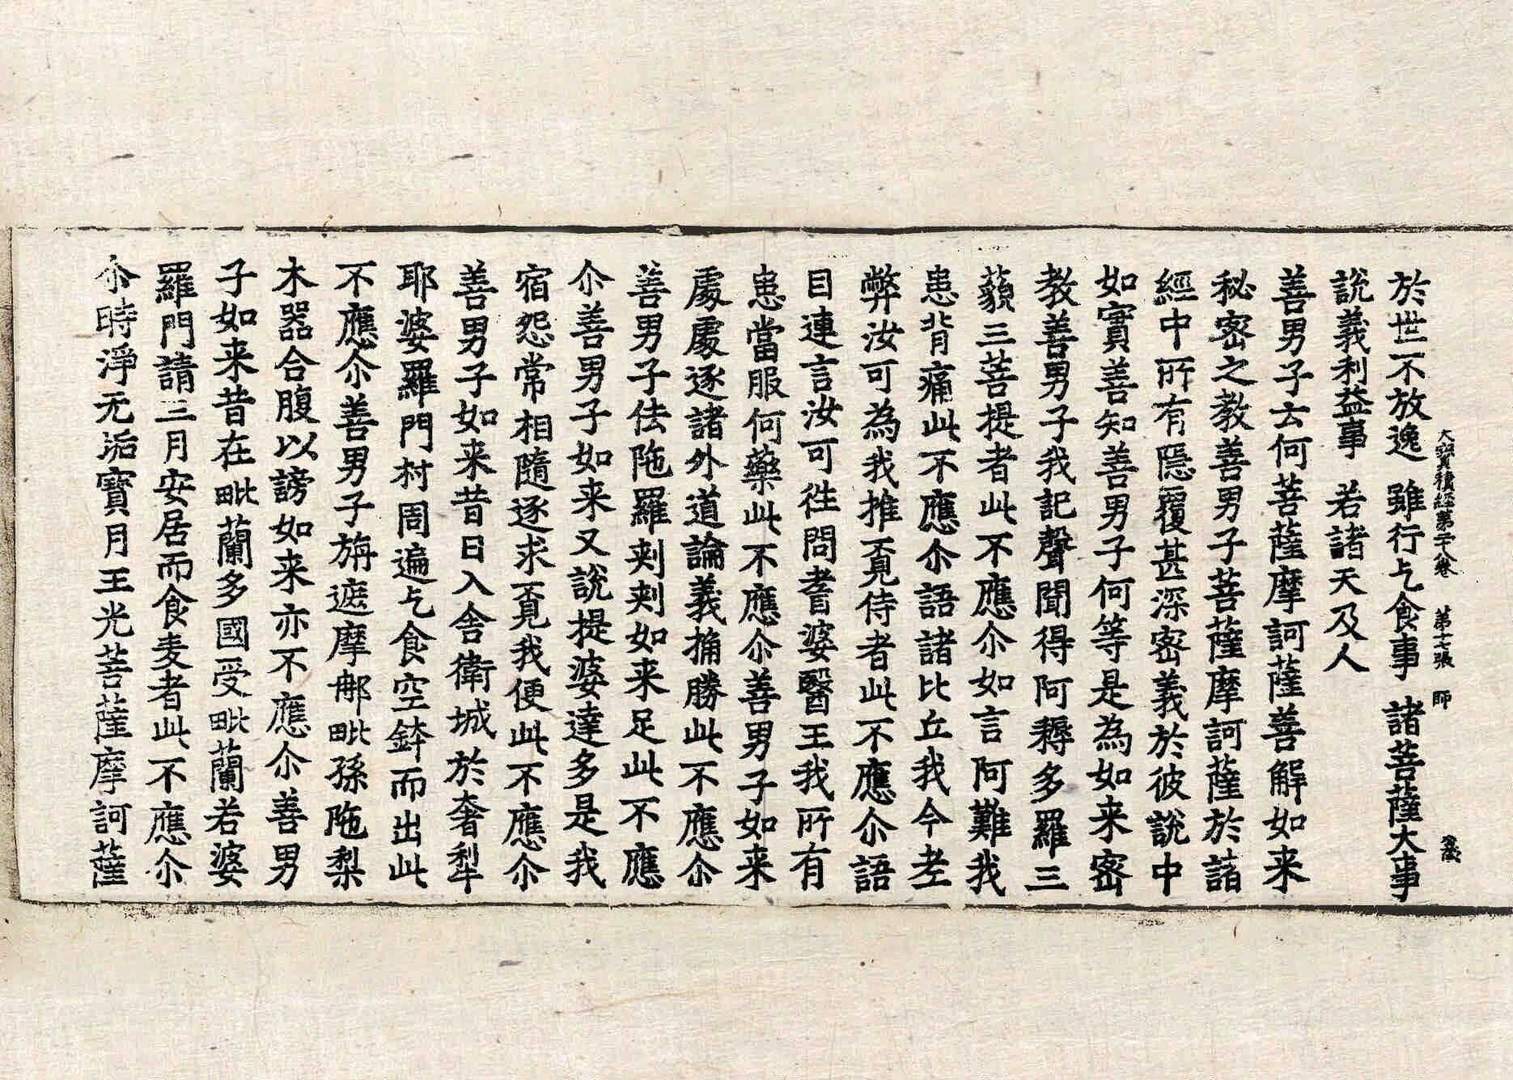 於世不放逸 雖行乞食事 諸菩薩大事
說義利益事 若諸天及人
善男子云何菩薩摩訶薩善解如来
秘密之教善男子菩薩摩訶薩於諸
經中所有隱覆甚深密義於彼說中
如實善知善男子何等是為如来密
教善男子我記聲聞得阿耨多羅三
藐三菩提者此不應尒如言阿難我
患背痛此不應尒語諸比丘我今老
弊汝可為我推覓侍者此不應尒語
目連言汝可往問耆婆醫王我所有
患當服何藥此不應尒善男子如来
處處逐諸外道論義捔勝此不應尒
善男子佉陁羅刾刾如来足此不應
尒善男子如来又說提婆達多是我
宿怨常相隨逐求覓我便此不應尒
善男子如来昔日入舍衛城於奢犁
耶婆羅門村周遍乞食空鉢而出此
不應尒善男子旃遮摩那毗孫陁梨
木器合腹以謗如来亦不應尒善男
子如来昔在毗蘭多國受毗蘭若婆
羅門請三月安居而食麦者此不應尒
尒時淨无垢寶月王光菩薩摩訶薩